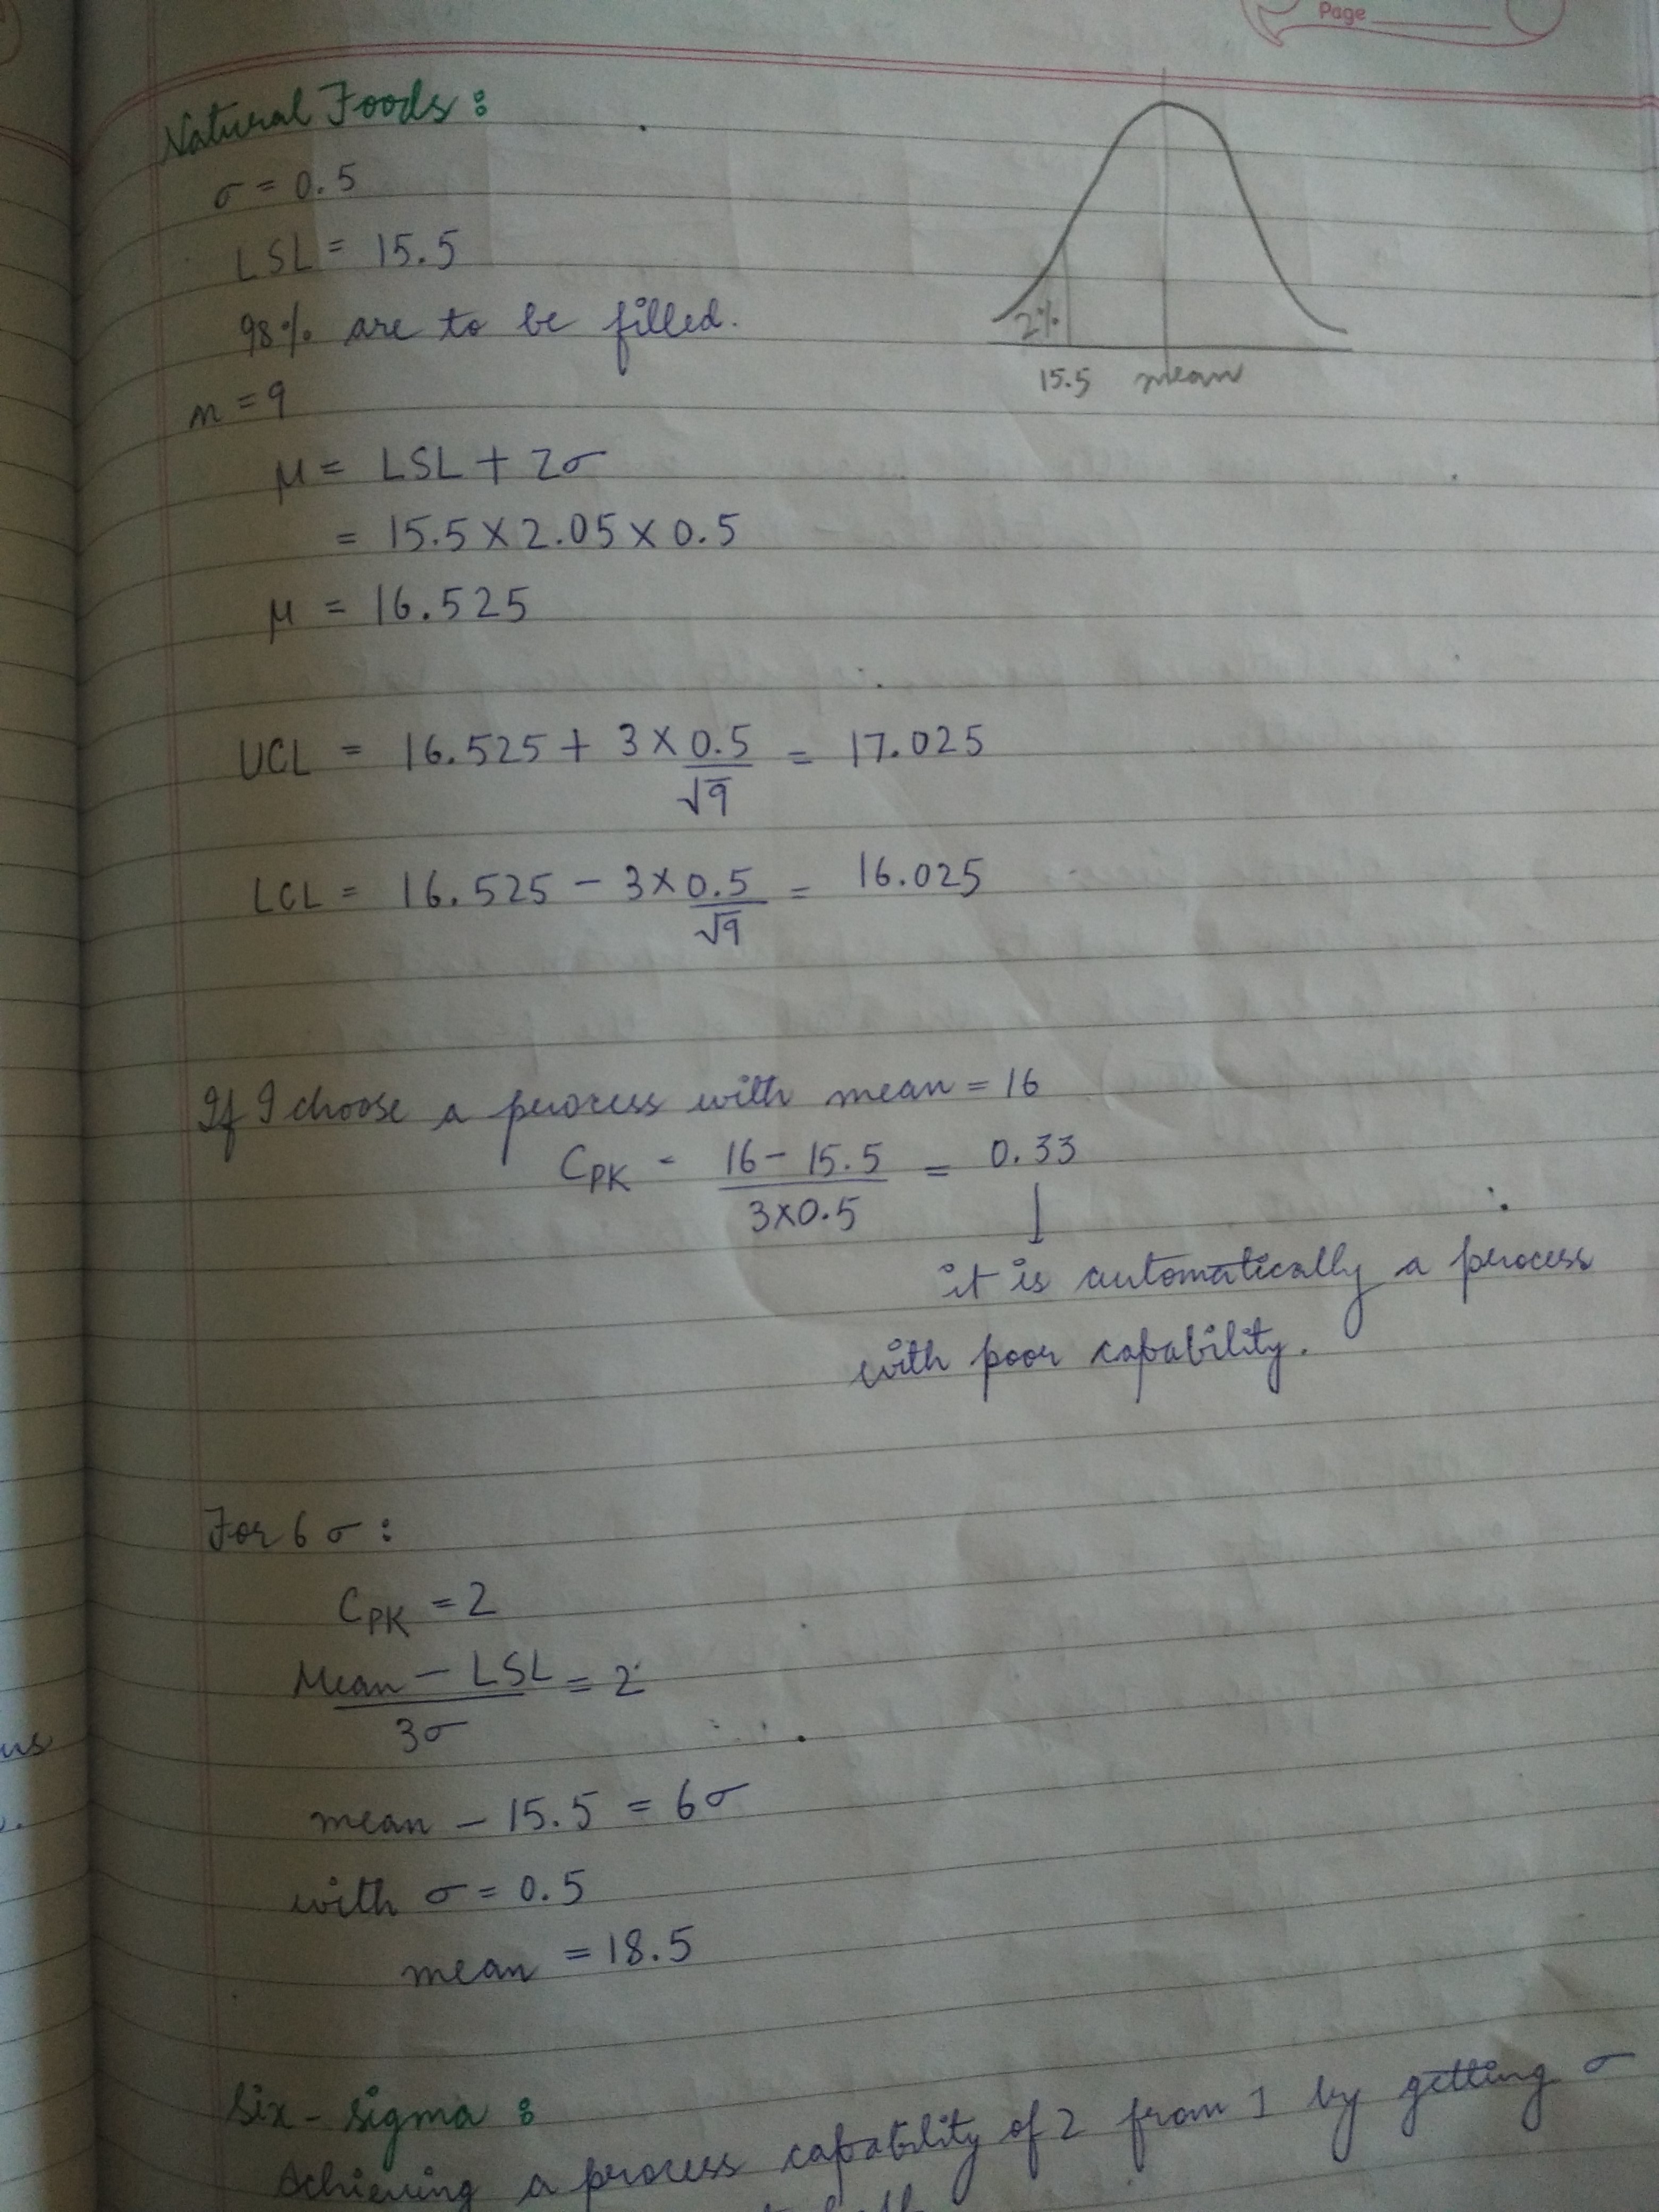 Page
Natural Foods:
σ = 0.5
LSL = 15.5
98% are to be filled.
n = 9
2%
15.5 mean
μ = LSL + Zσ
= 15.5 × 2.05 × 0.5
μ = 16.525
UCL = 16.525 + 3 × 0.5/√9 = 17.025
LCL = 16.525 - 3 × 0.5/√9 = 16.025
If I choose a process with mean = 16
CPK - 16 - 15.5 / 3×0.5 = 0.33
↓
it is automatically a process
with poor capability.
For 6σ:
CPK = 2
Mean - LSL / 3σ = 2
mean - 15.5 = 6σ
with σ = 0.5
mean = 18.5
Six-sigma:
Achieving a process capability of 2 from 1 by getting σ
us